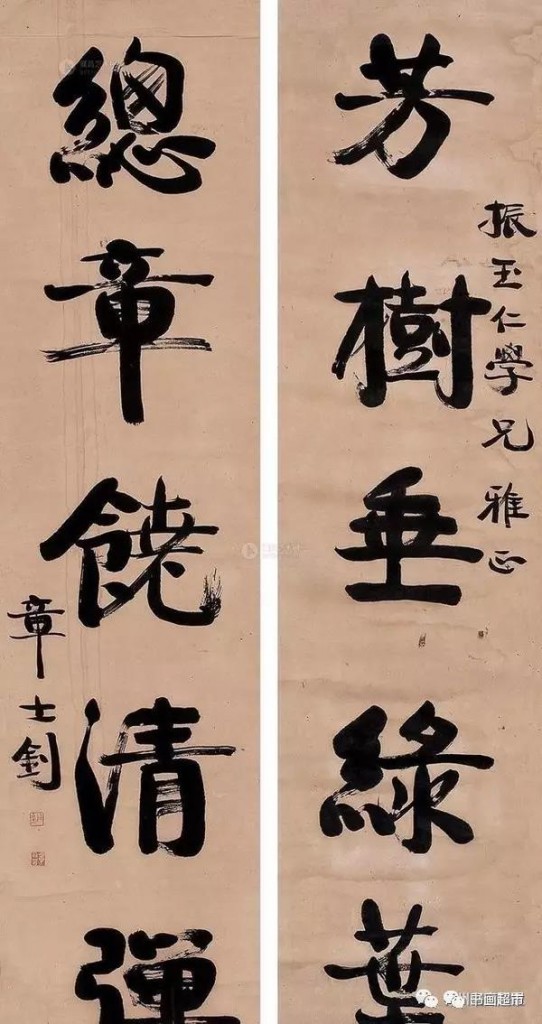 振玉仁學兄 雅正
芳樹垂綠葉
總章饒清彈
章士釗
州书画超市